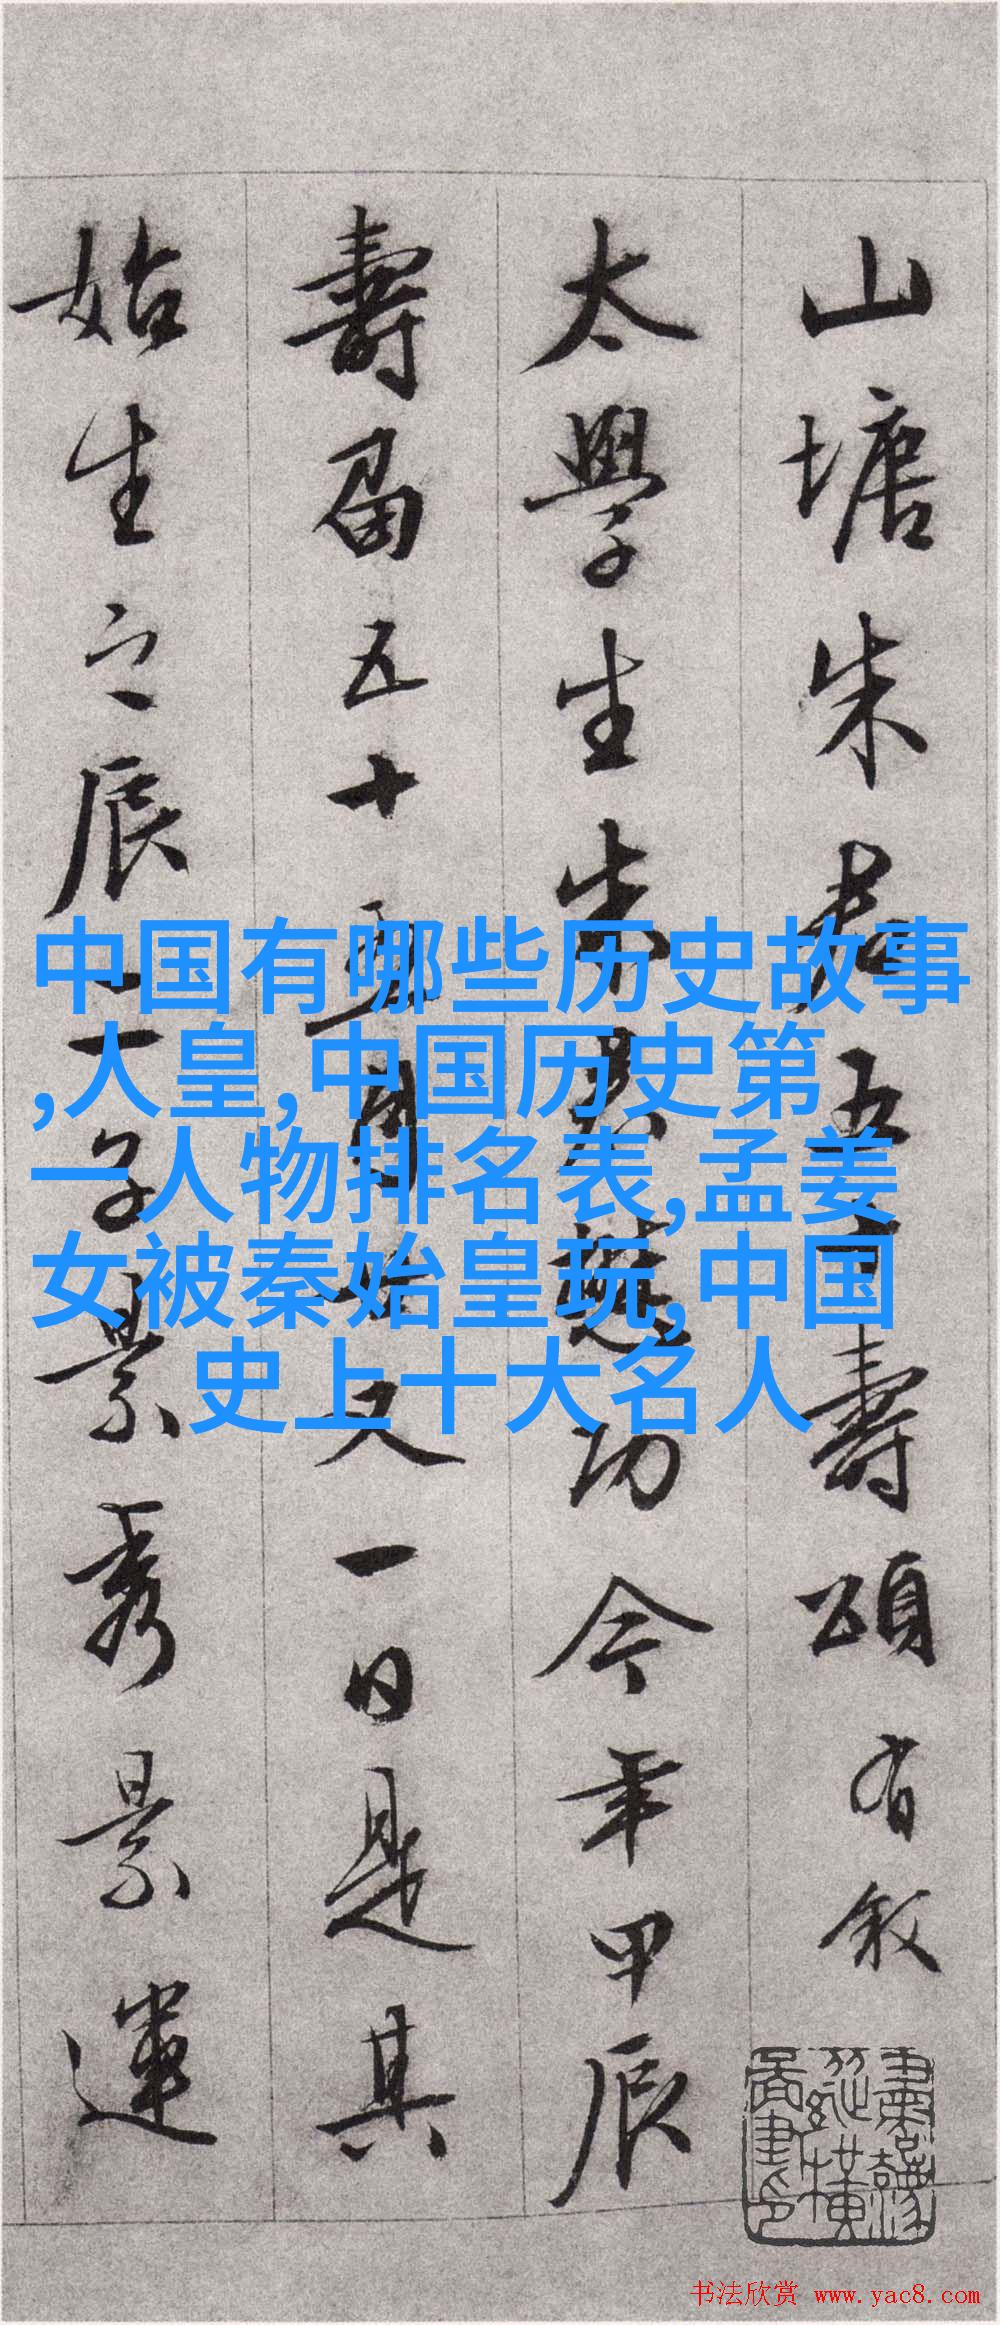 山塘朱君五十壽頌有敘
太學生朱功今年甲辰
壽届五十月又一日是其
始生之辰二子景秀景運
中国有哪些历史故事
,人皇,中国历史第
一人物排名表,孟姜
女被秦始皇玩,中国
史上十大名人
书法欣赏 www.yac8.com